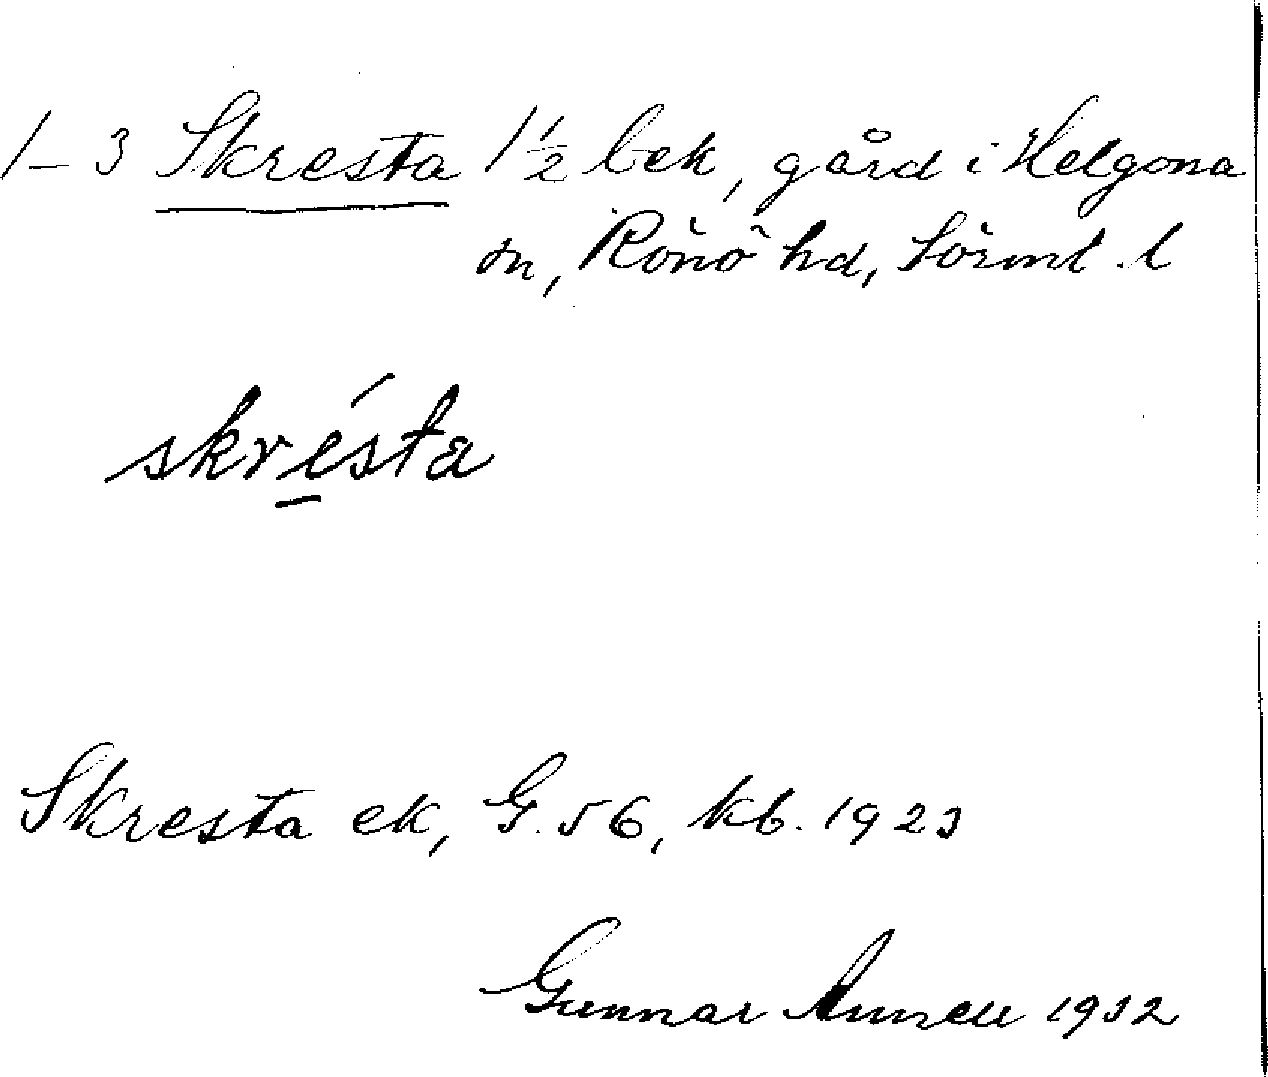 1-3 Skresta 1½ bek, gård i Helgona
sn, Rönö hd, Sörml. l
skrésta
Skresta ek, G. 56, kb. 1923
Gunnar 1932